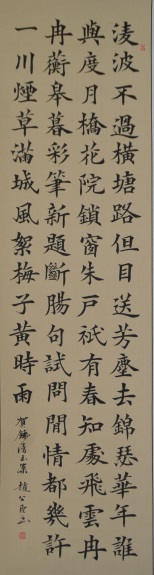 淩波不過橫塘路但目送芳塵去錦瑟華年誰
與度月橋花院鎖窗朱戶祇有春知處飛雲冉
冉蘅皋暮彩筆新題斷腸句試問閒情都幾許
一川煙草滿城風絮梅子黃時雨
賀鑄青玉案